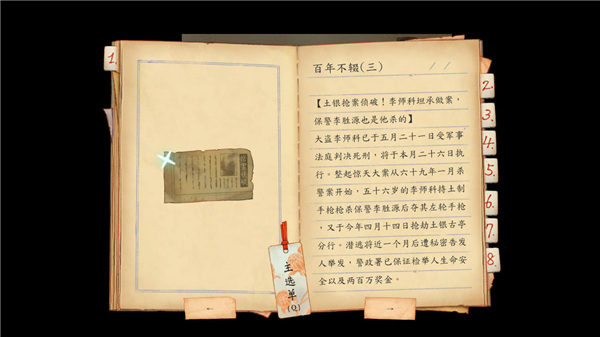 1.
百年不辍(三)
【土银抢案侦破！李师科坦承做案，
保警李胜源也是他杀的】
大盗李师科已于五月二十一日受军事
法庭判决死刑，将于本月二十六日执
行。整起惊天大案从六十九年一月杀
警案开始，五十六岁的李师科持土制
手枪枪杀保警李胜源后夺其左轮手枪
，又于今年四月十四日抢劫土银古亭
分行。潜逃将近一个月后遭秘密告发
人举发，警政署已保证检举人生命安
全以及两百万奖金。
2.
3.
4.
5.
6.
7.
8.
主选单
(Q)